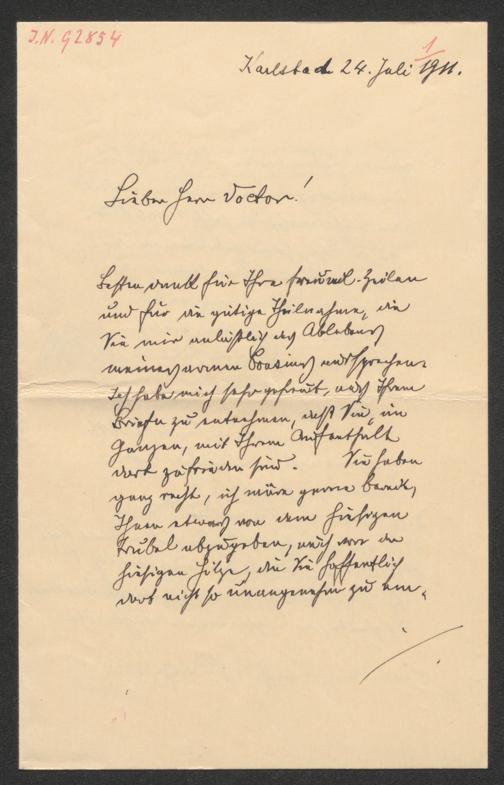 I.N. 92854
1
Karlsbad 24. Juli 1911.
Lieber Herr Doctor!
Besten Dank für Ihre freundl. Zeilen
und für die gütige Theilnahme, die
Sie mir anläßlich des Ablebens
meines armen Cousins aussprechen.
Ich habe mich sehr gefreut, aus Ihrem
Briefe zu entnehmen, daß Sie, im
Ganzen, mit Ihrem Aufenthalt
dort zufrieden sind. Sie haben
ganz recht, ich wäre gerne bereit,
Ihnen etwas von dem hiesigen
Trubel abzugeben, auch von der
hiesigen Hitze, die Sie hoffentlich
dort nicht so unangenehm zu em-